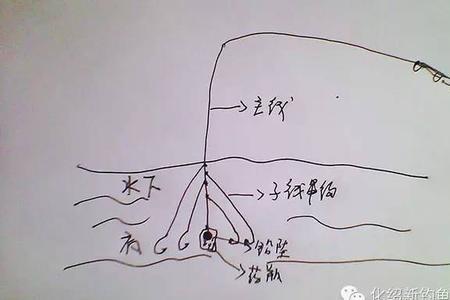 主线
水下
子线串钩
底
铅坠
药瓶
化绍新钓鱼